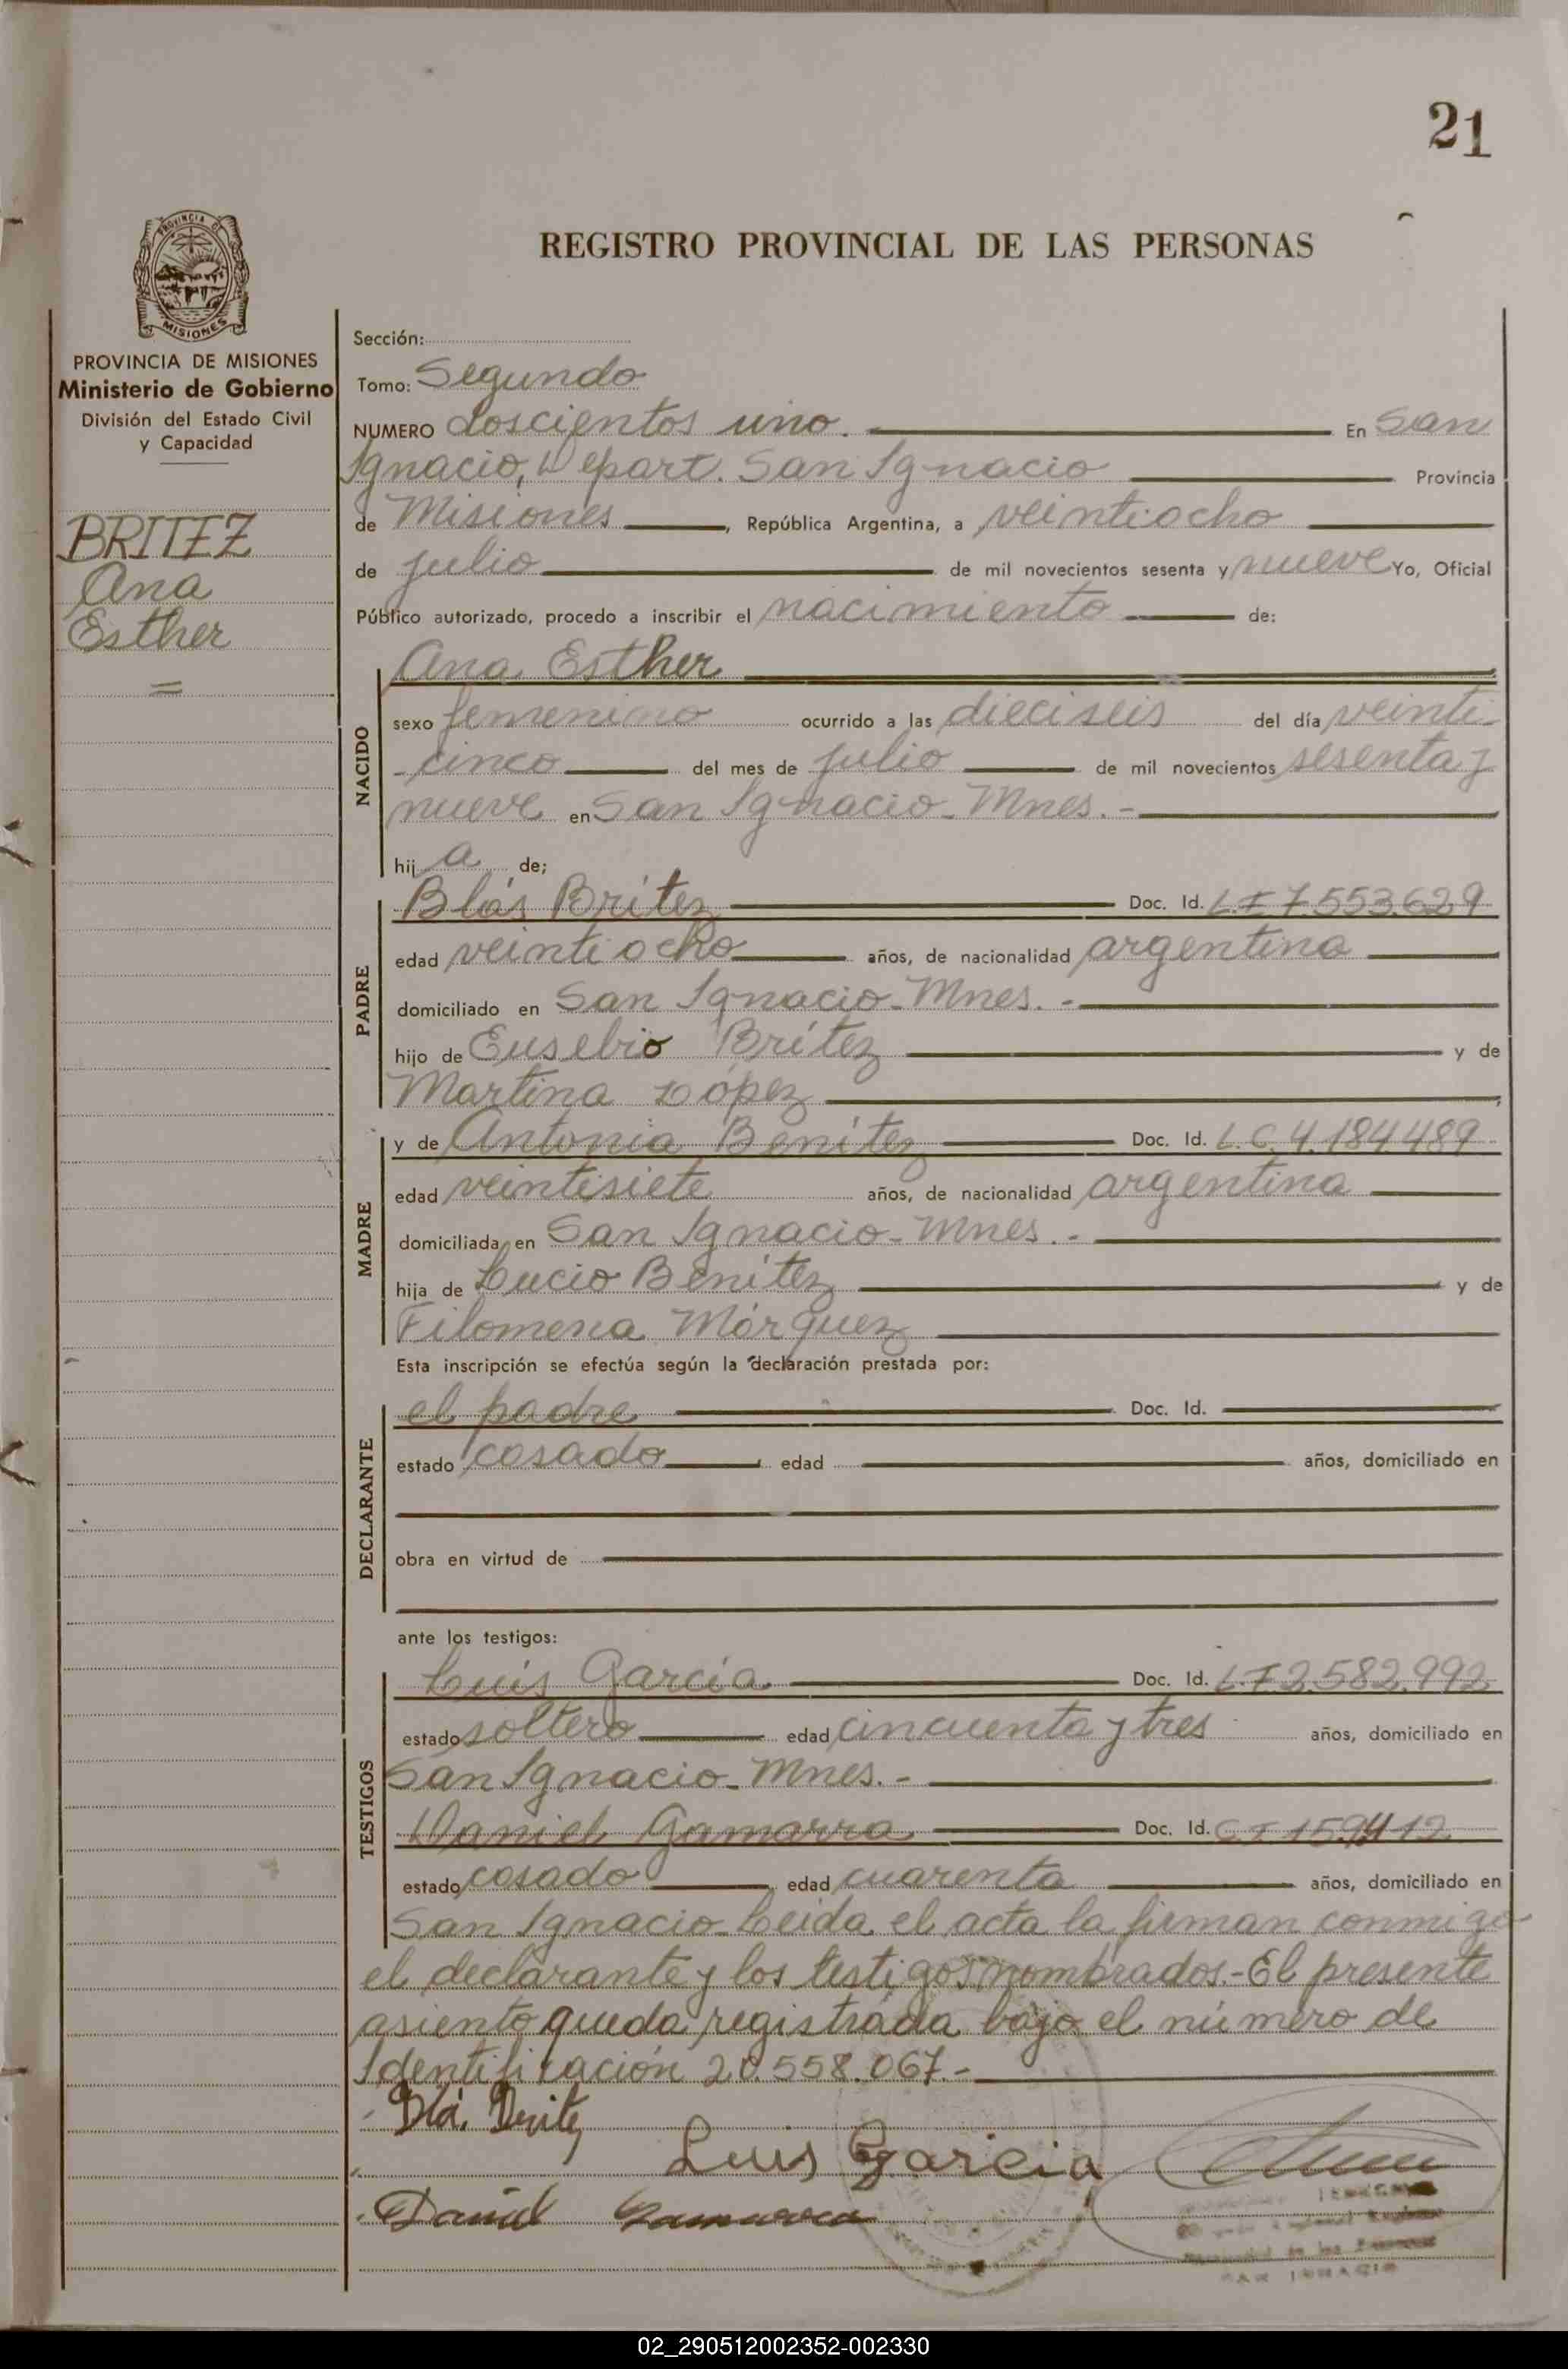 21
REGISTRO PROVINCIAL DE LAS PERSONAS
PROVINCIA DE
MISIONES
PROVINCIA DE MISIONES
Ministerio de Gobierno
División del Estado Civil
y Capacidad
BRITEZ
Ana
Esther
=
Sección:
Tomo: Segundo
NUMERO doscientos uno. En San
Ignacio, Depart. San Ignacio Provincia
de Misiones, República Argentina, a veintiocho
de julio de mil novecientos sesenta y nueve Yo, Oficial
Público autorizado, procedo a inscribir el nacimiento de:
Ana Esther
NACIDO
sexo femenino ocurrido a las dieciseis del día veinti-
cinco del mes de julio de mil novecientos sesenta y
nueve en San Ignacio-Mnes.-
hij a de;
PADRE
Blás Brítez Doc. Id. L.E 7.553.629
edad veintiocho años, de nacionalidad argentina
domiciliado en San Ignacio-Mnes.-
hijo de Eusebio Brítez y de
Martina López
MADRE
y de Antonia Benítez Doc. Id. L.C.4.184.489
edad veintisiete años, de nacionalidad argentina
domiciliada en San Ignacio-Mnes.-
hija de Lucio Benítez y de
Filomena Márquez
Esta inscripción se efectúa según la declaración prestada por:
DECLARANTE
el padre Doc. Id.
estado casado edad años, domiciliado en
obra en virtud de
ante los testigos:
TESTIGOS
Luis García Doc. Id. L.E 2.582.992
estado soltero edad cincuenta y tres años, domiciliado en
San Ignacio-Mnes.-
Daniel Gamarra Doc. Id. C.I 159412
estado casado edad cuarenta años, domiciliado en
San Ignacio-Leida el acta la firman conmigo
el declarante y los testigos nombrados.-El presente
asiento queda registrada bajo el número de
Identificación 20.558.067.-
Luis Garcia
Daniel Gamarra
SAN IGNACIO
02_290512002352-002330